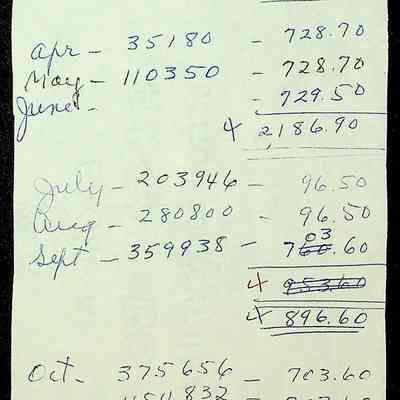 Apr - 35180 - 728.70
May - 110350 - 728.70
June - - 729.50
4 2186.90
July - 203946 - 96.50
Aug - 280800 - 96.50
Sept - 359938 - 703.60
4 953.60
4 896.60
Oct - 375656 - 703.60